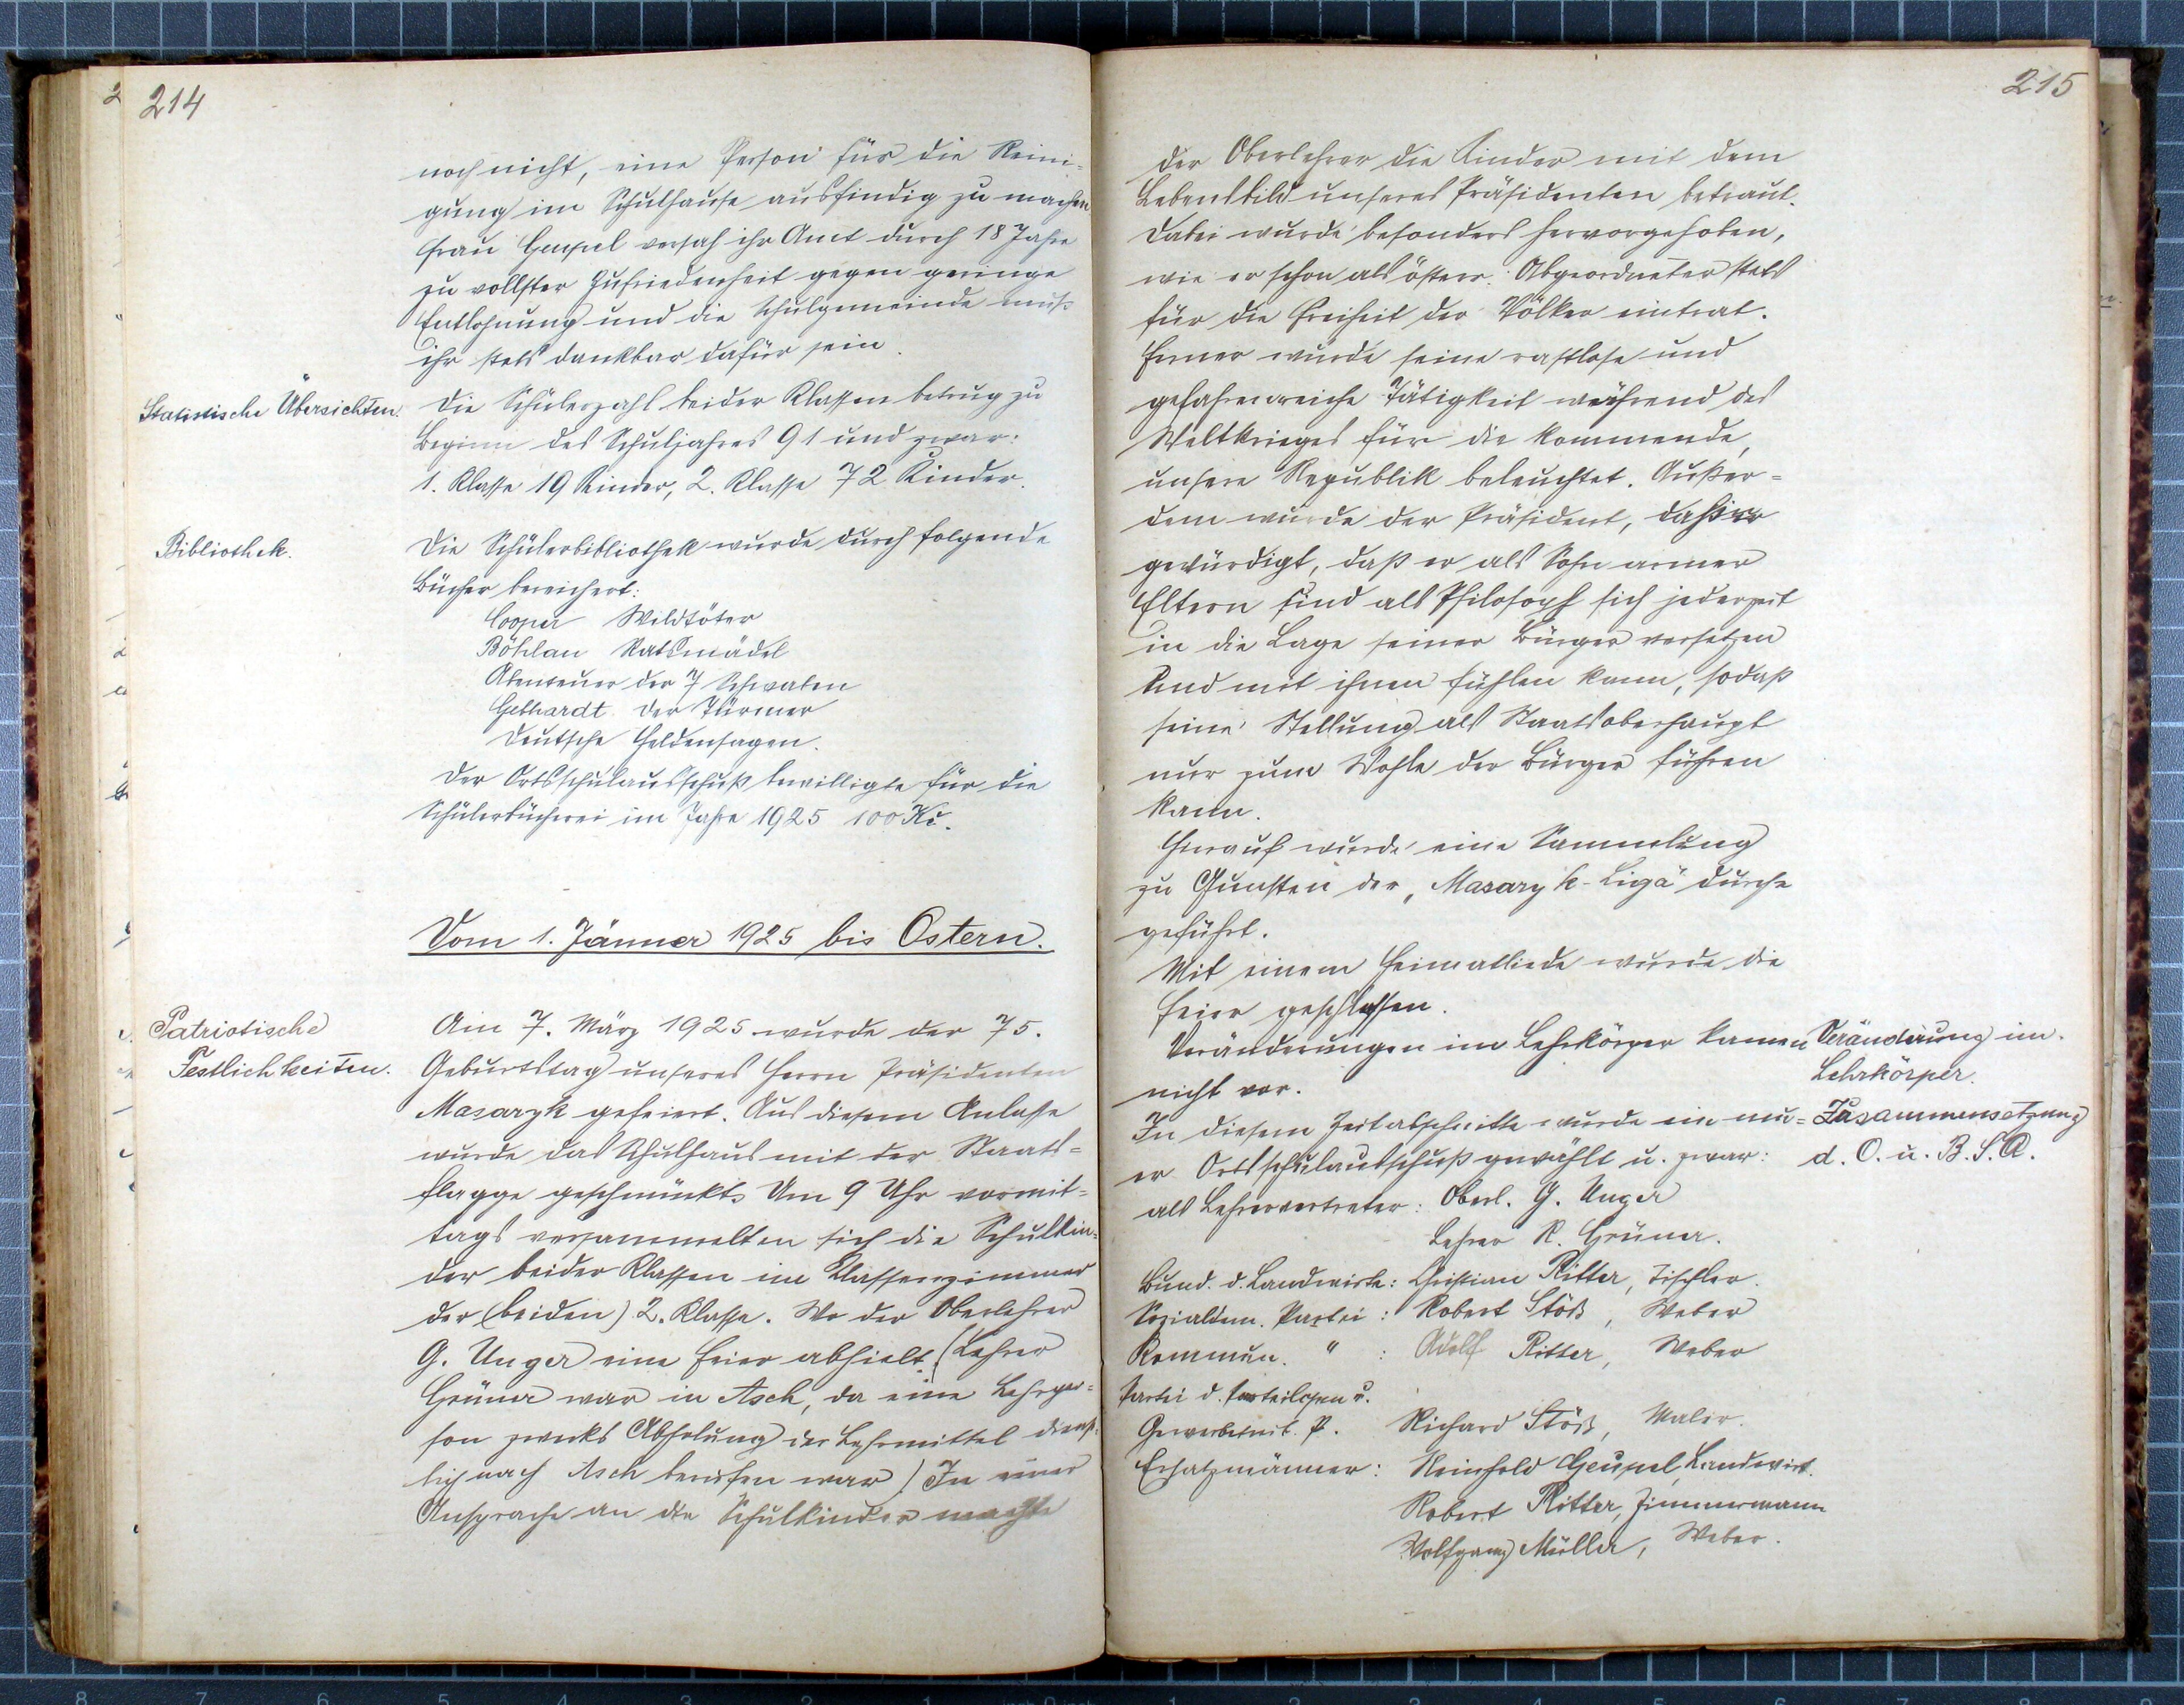 214
noch nicht, eine Person für die Reini-
gung im Schulhause ausfindig zu machen
Frau Geupel versah ihr Amt durch 18 Jahre
zu vollster Zufriedenheit gegen geringe
Entlohnung und die Schulgemeinde muß
ihr stets dankbar dafür sein.
Statistische Übersichten.
Die Schülerzahl beider Klassen betrug zu
Beginn des Schuljahres 91 und zwar:
1. Klasse 19 Kinder, 2. Klasse 72 Kinder.
Bibliothek.
Die Schülerbibliothek wurde durch folgende
Bücher bereichert:
Cooper Wildtöter
Böhlau Ratsmädel
Abenteuer der 7 Schwaben
Gebhardt der Türmer
Deutsche Heldensagen.
Der Ortsschulausschuß bewilligte für die
Schülerbücherei im Jahre 1925 100 Kč.
Vom 1. Jänner 1925 bis Ostern.
Patriotische
Festlichkeiten.
Am 7. März 1925 wurde der 75.
Geburtstag unseres Herrn Präsidenten
Masaryk gefeiert. Aus diesem Anlasse
wurde das Schulhaus mit der Staats-
flagge geschmückt. Um 9 Uhr vormit-
tags versammelten sich die Schulkin-
der beider Klassen im Klassenzimmer
der (beiden) 2. Klasse. Wo der Oberlehrer
G. Unger eine Feier abhielt. (Lehrer
Grüner war in Asch, da eine Lehrper-
son zwecks Abholung der Lehrmittel dienst-
lich nach Asch berufen war) In einer
Ansprache an die Schulkinder machte
215
der Oberlehrer die Kinder mit dem
Lebensbild unseres Präsidenten betraut.
Dabei wurde besonders hervorgehoben,
wie er schon als österr. Abgeordneter stets
für die Freiheit der Völker eintrat.
Ferner wurde seine rastlose und
gefahrenreiche Tätigkeit während des
Weltkrieges für die kommende,
unsere Republik beleuchtet. Außer-
dem wurde der Präsident, daß er
gewürdigt, daß er als Sohn armer
Eltern und als Philosoph sich jederzeit
in die Lage seiner Bürger versetzen
und mit ihnen fühlen kann, sodaß
seine Stellung als Staatsoberhaupt
nur zum Wohle der Bürger führen
kann.
Hierauf wurde eine Sammlung
zu Gunsten der „Masaryk-Liga" durch
geführt.
Mit einem Heimatliede wurde die
Feier geschlossen.
Veränderungen im Lehrkörper kamen
nicht vor.
Veränderung im
Lehrkörper.
In diesem Zeitabschnitte wurde ein neu-
er Ortsschulausschuß gewählt u. zwar:
Zusammensetzung
d. O. u. B. S. A.
als Lehrervertreter: Oberl. G. Unger
Lehrer R. Grüner.
Bund. d. Landwirte: Christian Ritter, Tischler.
Sozialdem. Partei: Robert Stöß, Weber
Kommun. " : Adolf Ritter, Weber
Partei d. Parteilosen u.
Gewerbetreib. P. Richard Stöß, Maler.
Ersatzmänner: Reinhold Geupel, Landwirt.
Robert Ritter, Zimmermann
Wolfgang Müller, Weber.